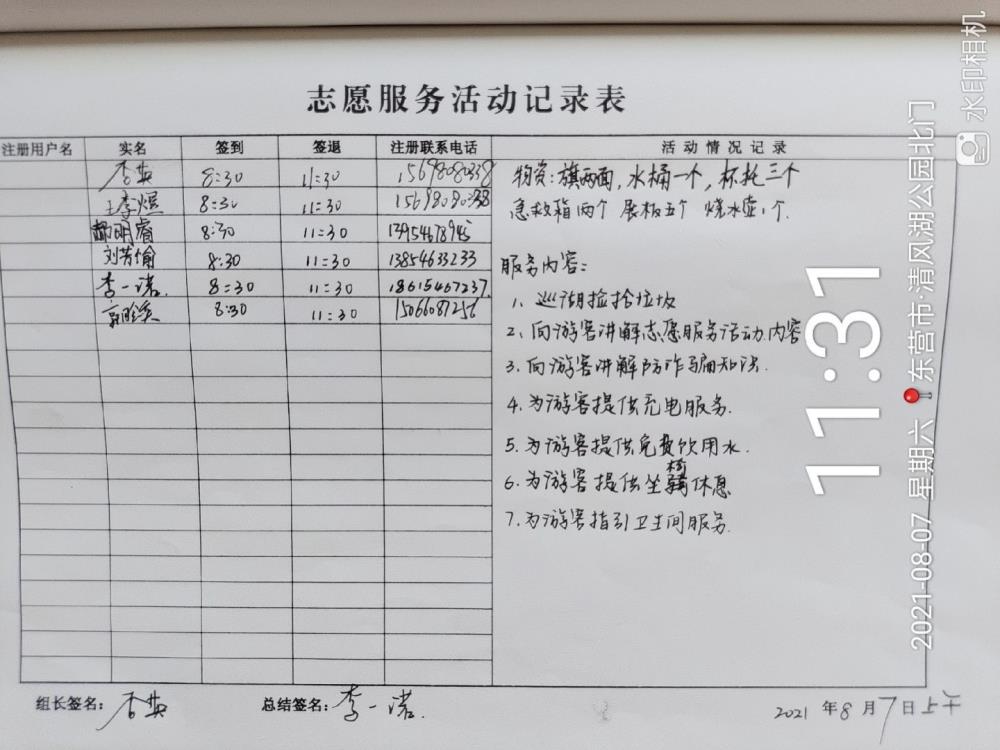 志愿服务活动记录表
注册用户名 实名 签到 签退 注册联系电话 活动情况记录
杏英 8:30 11:30
王李煜 8:30 11:30
明睿 8:30 11:30
刘芳愉 8:30 11:30 13854633233
李一诺. 8:30 11:30 18615467237.
8:30 11:30 15066087256
物资:旗两面,水桶一个,杯托三个
急救箱两个 展板五个 烧水壶1个.
服务内容:
1. 巡湖捡拾垃圾
2. 向游客讲解志愿服务活动内容
3. 向游客讲解防诈骗知识.
4. 为游客提供充电服务.
5. 为游客提供免费饮用水.
6. 为游客提供坐椅休息
7. 为游客指引卫生间服务.
组长签名: 杏英 总结签名: 李一诺. 2021 年 8 月 7 日上午
水印相机
11:31
2021-08-07 星期六 东营市·清风湖公园北门